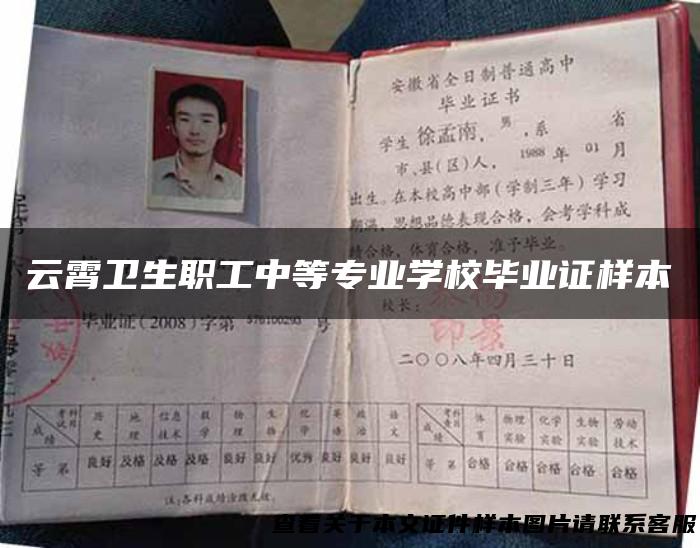 安徽省全日制普通高中
毕业证书
学生徐孟南,男,系 省
市、县(区)人, 1988 年 01 月
出生。在本校高中部(学制三年)学习
期满,思想品德表现合格,会考学科成
绩合格,体育合格,准予毕业。
云霄卫生职工中等专业学校毕业证样本
校长:
毕业证(2008)字第 576100293 号
二〇〇八年四月三十日
成绩 考试科目 历史 地理 信息技术 数学 物理 生物 化学 英语 政治 语文
等第 良好 及格 及格 良好 良好 良好 优秀 良好 良好 良好
成绩 考查科目 体育 物理实验 化学实验 生物实验 劳动技术
等第 合格 合格 合格 合格 合格
注:各科成绩涂改无效。
查看关于本文证件样本图片请联系客服